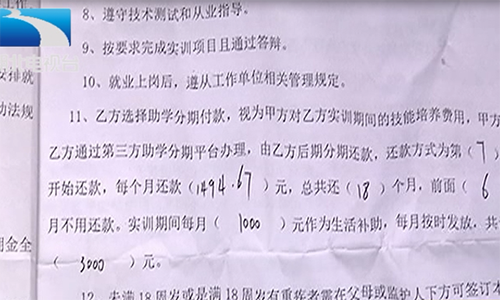 8、遵守技术测试和从业指导。
9、按要求完成实训项目且通过答辩。
10、就业上岗后，遵从工作单位相关管理规定。
11、乙方选择助学分期付款，视为甲方对乙方实训期间的技能培养费用，甲方
乙方通过第三方助学分期平台办理，由乙方后期分期还款，还款方式为第（7）
开始还款，每个月还款（1494.67）元，总共还（18）个月，前面（6
月不用还款。实训期间每月（1000）元作为生活补助，每月按时发放，共
（3000）元。
12、未满18周岁或是满18周岁有重疾者需在父母或监护人下方可签订本
安排就
动法规
佣金全